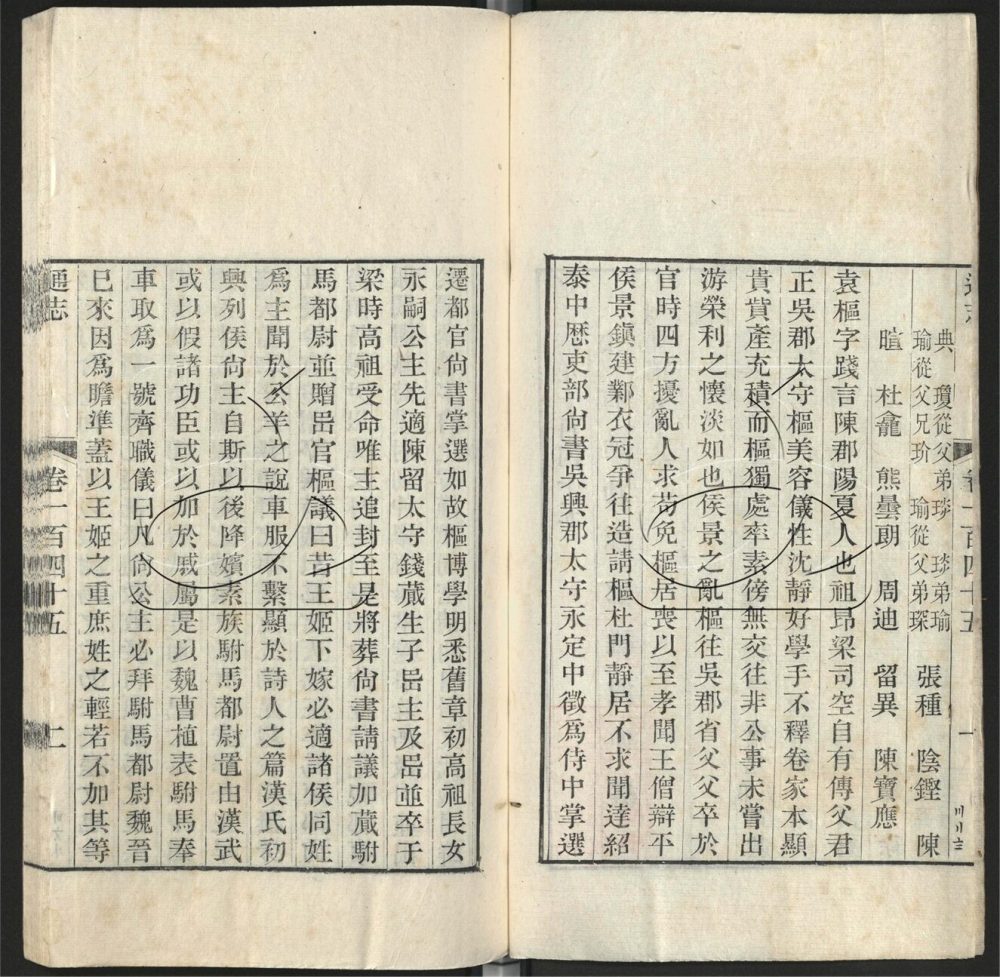 典　瓊從父弟琰　琰弟瑜
瑜從父兄玠　瑜從父弟琛　張種　陰鏗　陳
暄　杜龕　熊曇朗　周迪　留異　陳寶應
袁樞字踐言陳郡陽夏人也祖昂梁司空自有傳父君
正吳郡太守樞美容儀性沈靜好學手不釋卷家本顯
貴貲產充積而樞獨處率素傍無交往非公事未嘗出
游榮利之懷淡如也侯景之亂樞往吳郡省父父卒於
官時四方擾亂人求苟免樞居喪以至孝聞王僧辯平
侯景鎮建鄴衣冠爭往造請樞杜門靜居不求聞達紹
泰中歴吏部尚書吳興郡太守永定中徵爲侍中掌選
遷都官尚書掌選如故樞博學明悉舊章初高祖長女
永嗣公主先適陳留太守錢蕆生子岊主及岊並卒于
梁時高祖受命唯主追封至是將葬尚書請議加蕆駙
馬都尉並贈岊官樞議曰昔王姬下嫁必適諸侯同姓
爲主聞於公羊之說車服不繫顯於詩人之篇漢氏初
興列侯尚主自斯以後降嬪素族駙馬都尉置由漢武
或以假諸功臣或以加於戚屬是以魏曹植表駙馬奉
車取爲一號齊職儀曰凡尚公主必拜駙馬都尉魏晉
已來因爲瞻準蓋以王姬之重庶姓之輕若不加其等
通志　卷一百四十五　二